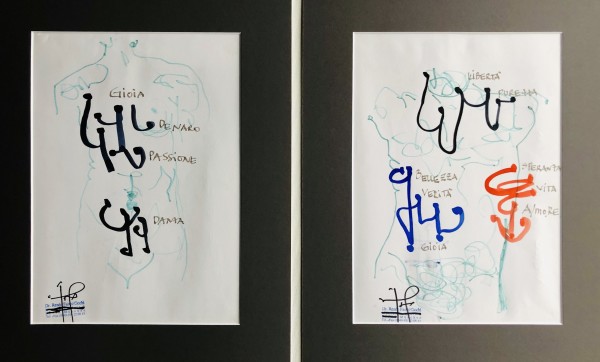 GIOIA
DENARO
PASSIONE
DAMA
LIBERTÀ
PUREZZA
BELLEZZA
VERITÀ
GIOIA
SPERANZA
VITA
AMORE